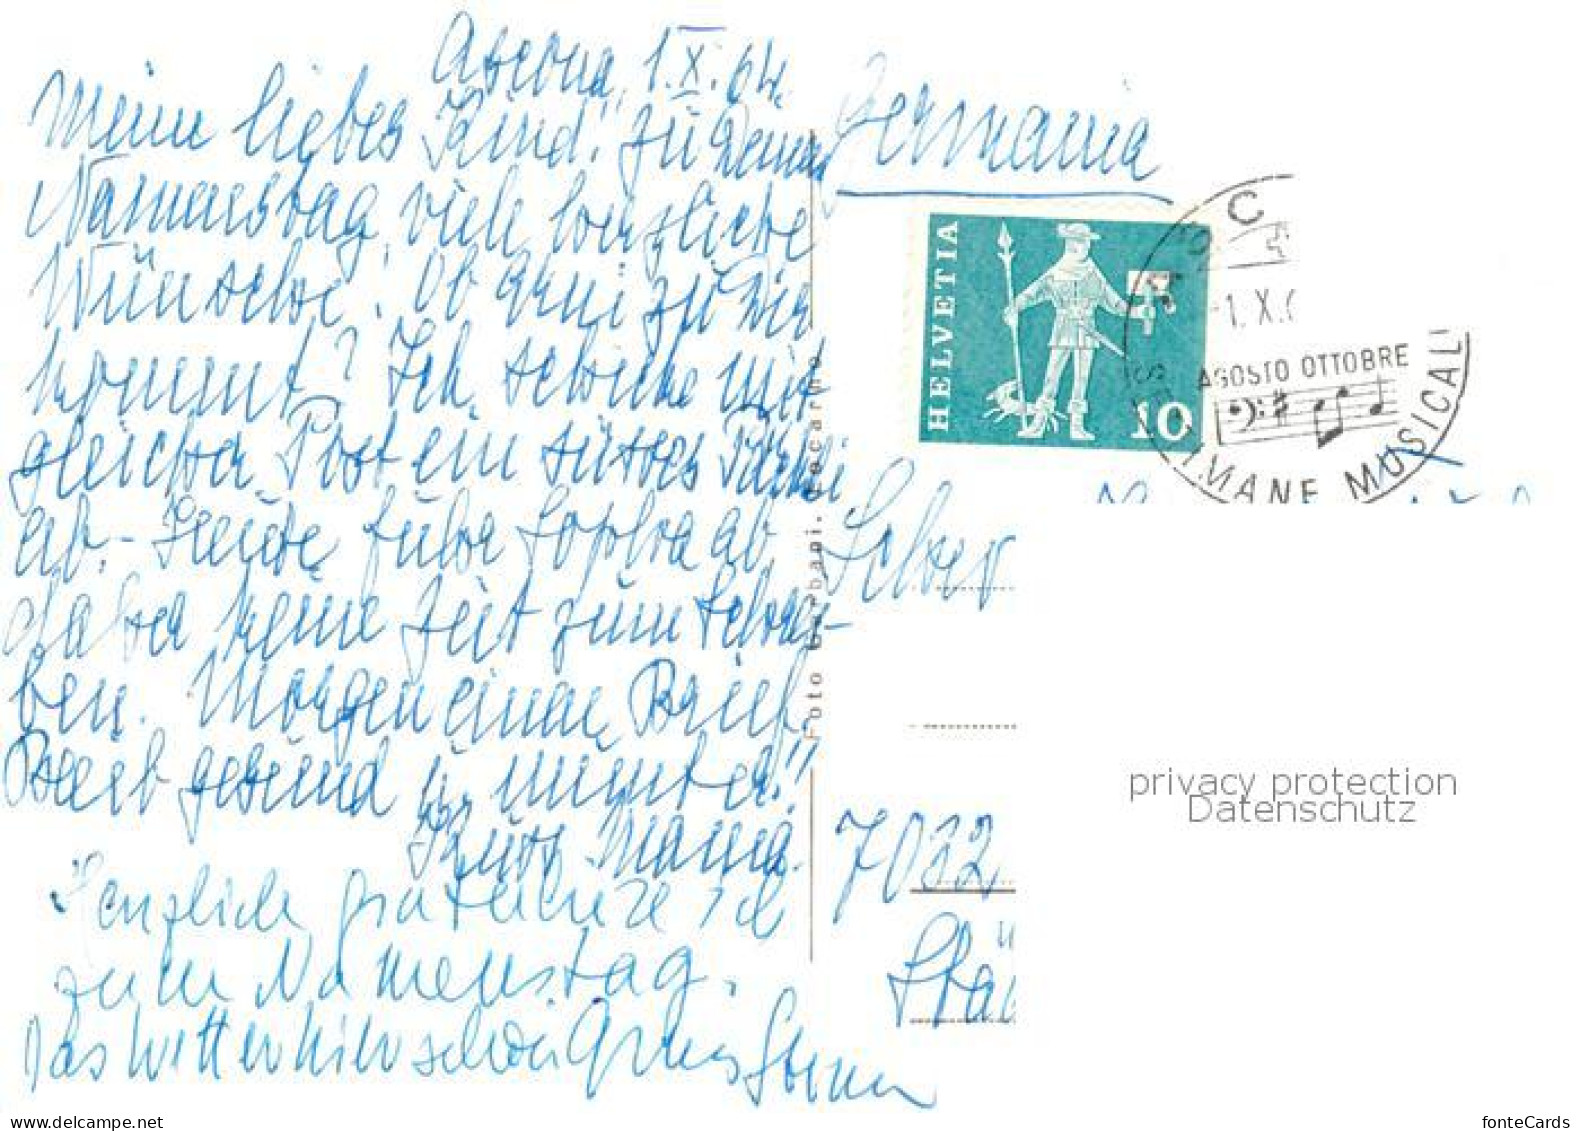 Ascona, 1.X.64.
Mein liebes Kind! Zu Deinem
Namenstag viele herzliche
Wünsche! Ob Gruni zu Dir
kommt? Ich schicke mit
gleicher Post ein süsses Packerl
ab. - Heide fuhr ab,
daher keine Zeit zum Schrei-
ben. Morgen einen Brief.
Bleib gesund u. munter!!
Kuss Mama.
Herzlich gratuliere ich
zum Namenstag.
Das Wetter hier schön Gruss
Germania
HELVETIA
10
-1.X.6
AGOSTO OTTOBRE
SETTIMANE MUSICALI
Foto Garbani, Locarno
7032
Stä
privacy protection
Datenschutz
www.delcampe.net
fonteCards